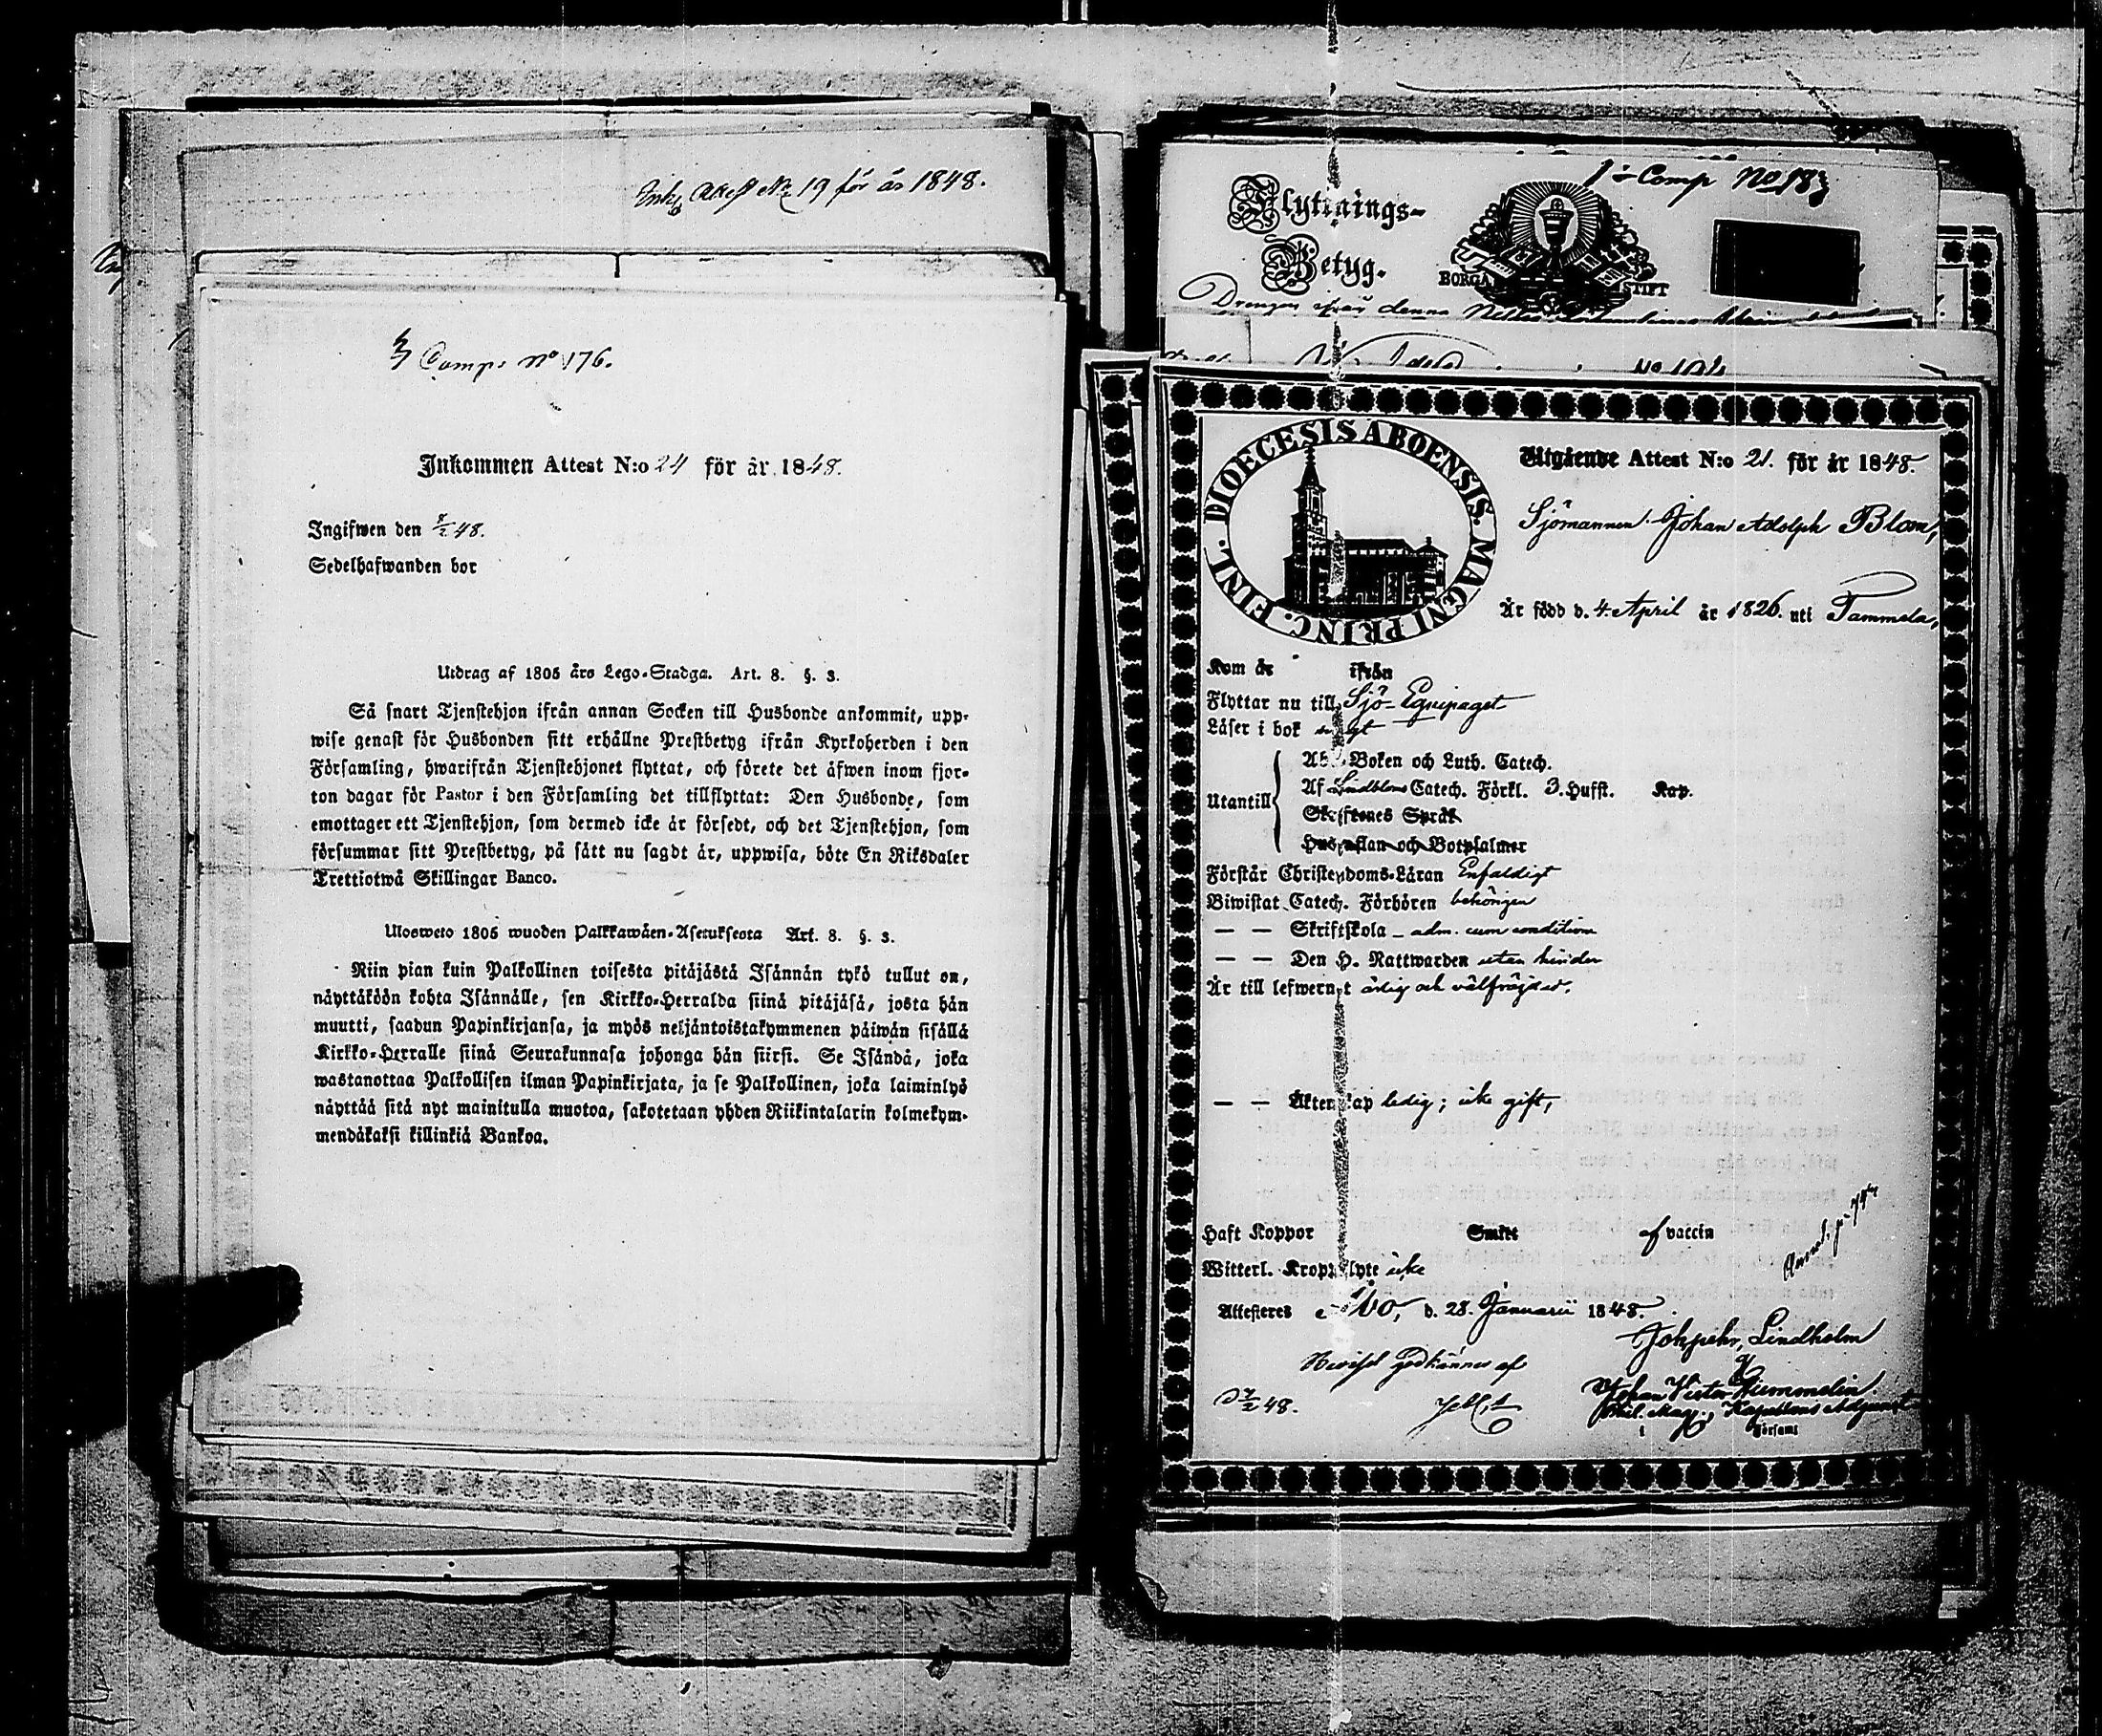 Attest No 19 för år 1848.
3 Comp: No 176.
Inkommen Attest N:o 24 för år 1848.
Ingifwen den 8/2 48.
Sedelhafwanden bor
Utdrag af 1805 års Lego-Stadga. Art. 8. §. 3.
Så snart Tjenstehjon ifrån annan Socken till Husbonde ankommit, upp-
wise genast för Husbonden sitt erhållne Prestbetyg ifrån Kyrkoherden i den
Församling, hwarifrån Tjenstehjonet flyttat, och förete det äfwen inom fjor-
ton dagar för Pastor i den Församling det tillflyttat: Den Husbonde, som
emottager ett Tjenstehjon, som dermed icke är försedt, och det Tjenstehjon, som
försummar sitt Prestbetyg, på sätt nu sagdt är, uppwisa, böte En Riksdaler
Trettiotwå Skillingar Banco.
Ulosweto 1805 wuoden Palkkawäen-Asetuksesta Art. 8. §. 3.
Niin pian kuin Palkollinen toisesta pitäjästä Isännän tykö tullut on,
näyttäköön kohta Isännälle, sen Kirkko-Herralda siinä pitäjäsä, josta hän
muutti, saadun Papinkirjansa, ja myös neljäntoistakymmenen päiwän sisällä
Kirkko-Herralle siinä Seurakunnasa johonga hän siirsi. Se Isändä, joka
wastanottaa Palkollisen ilman Papinkirjata, ja se Palkollinen, joka laiminlyö
näyttää sitä nyt mainitulla muotoa, sakotetaan yhden Riikintalarin kolmekym-
mendäkaksi killinkiä Bankoa.
Comp No 183
Flyttnings-
Betyg.
BORGÅ STIFT
Drengen ifrån denna
DIOECESIS ABOENSIS. MAGNI PRINC. FINL.
Utgående Attest N:o 21. för år 1848.
Sjömannen Johan Adolph Blom,
Är född d. 4. April år 1826. uti Tammela,
Kom år ifrån
Flyttar nu till Sjö-Equipaget
Läser i bok
Utantill
Ab. Boken och Luth. Catech.
Af Lindbloms Catech. Förkl. 3. Hufst. Kap.
Skriftenes Språk
Hustaflan och Botpsalmer
Förstår Christendoms-Läran Enfaldigt
Biwistat Catech. Förhören behörigen
— — Skriftskola - adm. cum conditione
— — Den H. Nattwarden utan hinder
Är till lefwernet ärlig och välfräjdad.
— — Äktenskap ledig; icke gift,
Haft Koppor Smitt af vaccin
Witterl. Kropslyte icke
Attesteres Åbo, d. 28. Januarii 1848.
Joh. Lindholm
godkännes af
Johan Victor Hummelin.
Phil. Mag., Kapellans Adjunct
d 7/2 48.
i Församl